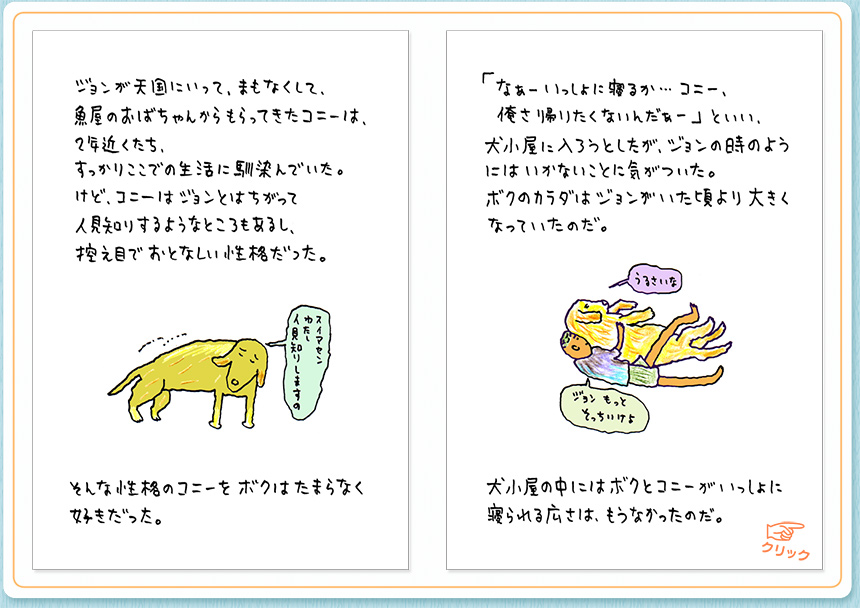 ジョンが天国にいって、まもなくして、
魚屋のおばちゃんからもらってきたコニーは、
2年近くたち、
すっかりここでの生活に馴染んでいた。
けど、コニーはジョンとはちがって
人見知りするようなところもあるし、
控え目でおとなしい性格だった。
スイマセン
わたし
人見知りしますの
そんな性格のコニーをボクはたまらなく
好きだった。
「なぁーいっしょに寝るか…コニー、
俺さ帰りたくないんだぁー」といい、
犬小屋に入ろうとしたが、ジョンの時のよう
にはいかないことに気がついた。
ボクのカラダはジョンがいた頃より大きく
なっていたのだ。
うるさいな
ジョン もっと
そっちいけよ
犬小屋の中にはボクとコニーがいっしょに
寝られる広さは、もうなかったのだ。
クリック